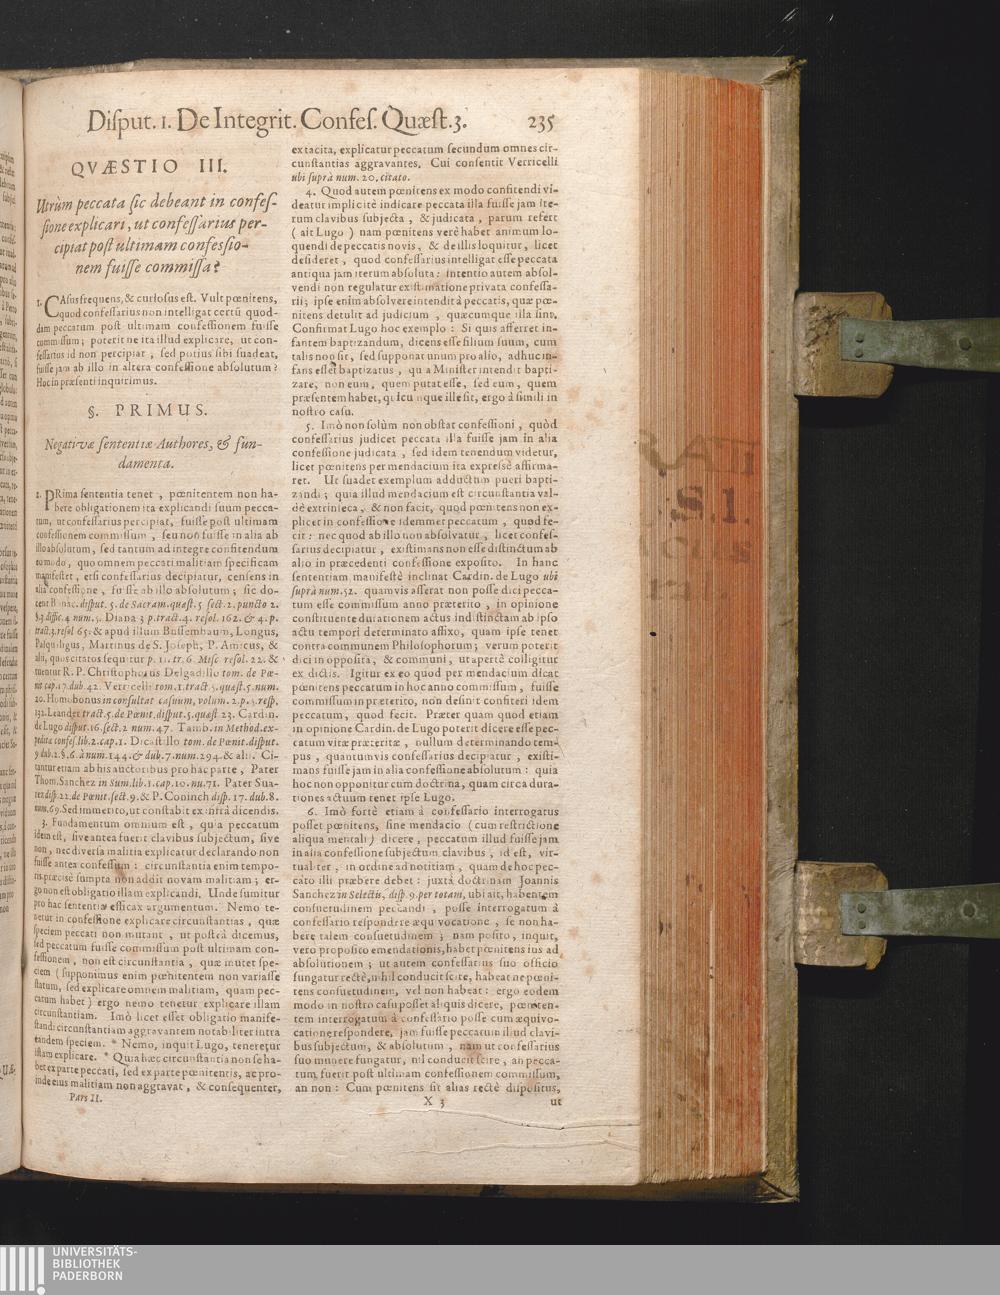 Disput. 1. De Integrit. Confes. Quæst. 3. 235
QVÆSTIO III.
Utrùm peccata sic debeant in confes-
sione explicari, ut confessarius per-
cipiat post ultimam confessio-
nem fuisse commissa?
1. CAsus frequens, & curiosus est. Vult pœnitens,
quod confessarius non intelligat certũ quod-
dam peccatum post ultimam confessionem fuisse
commissum; poterit ne ita illud explicare, ut con-
fessarius id non percipiat, sed potius sibi suadeat,
fuisse jam ab illo in altera confessione absolutum?
Hoc in præsenti inquirimus.
§. PRIMUS.
Negativæ sententiæ Authores, & fun-
damenta.
2. PRima sententia tenet, pœnitentem non ha-
bere obligationem ita explicandi suum pecca-
tum, ut confessarius percipiat, fuisse post ultimam
confessionem commissum, seu non fuisse in alia ab
illo absolutum, sed tantum ad integre confitendum
eo modo, quo omnem peccati malitiam specificam
manifestet, etsi confessarius decipiatur, censens in
alia confessione, fuisse ab illo absolutum; sic do-
cent Bonac. disput. 5. de Sacram. quæst. 5 sect. 2. puncto 2.
§. 3 diffic. 4 num. 5. Diana 3 p. tract. 4. resol. 162. & 4. p.
tract. 3. resol 65: & apud illum Bussembaum, Longus,
Palquiligus, Martinus de S. Joseph, P. Amicus, &
alii, quos citatos sequitur p. 11. tr. 6. Misc resol. 22. &
tuentur R. P. Christophorus Delgadillo tom. de Pœ-
nit cap. 17. dub. 42. Verricelli tom. 1. tract. 5. quæst. 5. num.
20. Homobonus in consultat casuum, volum. 2. p. 3. resp.
132. Leander tract. 5. de Pœnit. disput. 5. quæst 23. Cardin.
de Lugo disput. 16. sect. 2 num. 47. Tamb. in Method. ex-
peditæ confes. lib. 2. cap. 1. Dicastillo tom. de Pœnit. disput.
9 dub. 2. §. 6. à num. 144. & dub. 7. num. 294. & alii. Ci-
tantur etiam ab his auctoribus pro hac parte, Pater
Thom. Sanchez in Sum. lib. 1. cap. 10. nu. 71. Pater Sua-
rez disp. 22. de Pœnit. sect. 9. & P. Coninch disp. 17. dub. 8.
num. 69. Sed immerito, ut constabit ex infrà dicendis.
3. Fundamentum omnium est, quia peccatum
idem est, sive antea fuerit clavibus subjectum, sive
non, nec diversa malitia explicatur declarando non
fuisse antea confessum: circunstantia enim tempo-
ris præcisè sumpta non addit novam malitiam; er-
go non est obligatio illam explicandi. Unde sumitur
pro hac sententia efficax argumentum. Nemo te-
netur in confessione explicare circunstantias, quæ
speciem peccati non mutant, ut posteà dicemus,
sed peccatum fuisse commissum post ultimam con-
fessionem, non est circunstantia, quæ mutet spe-
ciem (supponimus enim pœnitentem non variasse
statum, sed explicare omnem malitiam, quam pec-
catum habet) ergo nemo tenetur explicare illam
circunstantiam. Imò licet esset obligatio manife-
standi circunstantiam aggravantem notabiliter intra
eandem speciem. * Nemo, inquit Lugo, teneretur
istam explicare. * Quia hæc circunstantia non se ha-
bet ex parte peccati, sed ex parte pœnitentis, ac pro-
inde eius malitiam non aggravat, & consequenter,
Pars II.
ex tacita, explicatur peccatum secundum omnes cir-
cunstantias aggravantes. Cui consentit Verricelli
ubi suprà num. 20. citato.
4. Quod autem pœnitens ex modo confitendi vi-
deatur implicitè indicare peccata illa fuisse jam ite-
rum clavibus subjecta, & judicata, parum refert
(ait Lugo) nam pœnitens verè habet animum lo-
quendi de peccatis novis, & de illis loquitur, licet
desideret, quod confessarius intelligat esse peccata
antiqua jam iterum absoluta: intentio autem absol-
vendi non regulatur existimatione privata confessa-
rii; ipse enim absolvere intendit à peccatis, quæ pœ-
nitens detulit ad judicium, quæcumque illa sint.
Confirmat Lugo hoc exemplo: Si quis afferret in-
fantem baptizandum, dicens esse filium suum, cum
talis non sit, sed supponat unum pro alio, adhuc in-
fans esset baptizatus, quia Minister intendit bapti-
zare, non eum, quem putat esse, sed eum, quem
præsentem habet, quicunque ille sit, ergo à simili in
nostro casu.
5. Imò non solùm non obstat confessioni, quòd
confessarius judicet peccata illa fuisse jam in alia
confessione judicata, sed idem tenendum videtur,
licet pœnitens per mendacium ita expressè affirma-
ret. Ut suadet exemplum adductum pueri bapti-
zandi; quia illud mendacium est circunstantia val-
dè extrinseca, & non facit, quod pœnitens non ex-
plicet in confessione idemmet peccatum, quod fe-
cit: nec quod ab illo non absolvatur, licet confes-
sarius decipiatur, existimans non esse distinctum ab
alio in præcedenti confessione exposito. In hanc
sententiam manifestè inclinat Cardin. de Lugo ubi
suprà num. 52. quamvis asserat non posse dici pecca-
tum esse commissum anno præterito, in opinione
constituente durationem actus indistinctam ab ipso
actu tempori determinato affixo, quam ipse tenet
contra communem Philosophorum; verum poterit
dici in opposita, & communi, ut apertè colligitur
ex dictis. Igitur ex eo quod per mendacium dicat
pœnitens peccatum in hoc anno commissum, fuisse
commissum in præterito, non desinit confiteri idem
peccatum, quod fecit. Præter quam quod etiam
in opinione Cardin. de Lugo poterit dicere esse pec-
catum vitæ præteritæ, nullum determinando tem-
pus, quantumvis confessarius decipiatur, existi-
mans fuisse jam in alia confessione absolutum: quia
hoc non opponitur cum doctrina, quam circa dura-
tiones actuum tenet ipse Lugo.
6. Imò fortè etiam à confessario interrogatus
posset pœnitens, sine mendacio (cum restrictione
aliqua mentali) dicere, peccatum illud fuisse jam
in alia confessione subjectum clavibus, id est, vir-
tualiter, in ordine ad notitiam, quam de hoc pec-
cato illi præbere debet: juxtà doctrinam Joannis
Sanchez in Selectis, disp. 9. per totam, ubi ait, habentem
consuetudinem peccandi, posse interrogatum à
confessario respondere æquivocatione, se non ha-
bere talem consuetudinem; nam posito, inquit,
vero proposito emendationis, habet pœnitens ius ad
absolutionem; ut autem confessarius suo officio
fungatur rectè, nihil conducit scire, habeat ne pœni-
tens consuetudinem, vel non habeat: ergo eodem
modo in nostro casu posset aliquis dicere, pœniten-
tem interrogatum à confessario posse cum æquivo-
catione respondere, jam fuisse peccatum illud clavi-
bus subjectum, & absolutum, nam ut confessarius
suo munere fungatur, nil conducit scire, an pecca-
tum fuerit post ultimam confessionem commissum,
an non: Cum pœnitens sit alias rectè dispositus,
X 3 ut
UNIVERSITÄTS-
BIBLIOTHEK
PADERBORN